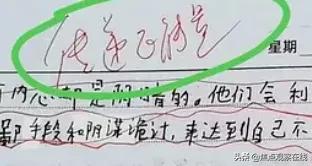 传递正能量
星期
内心都是阴暗的。他们会利
鄙手段和阴谋诡计,来达到自己不
头条 @焦点观察在线